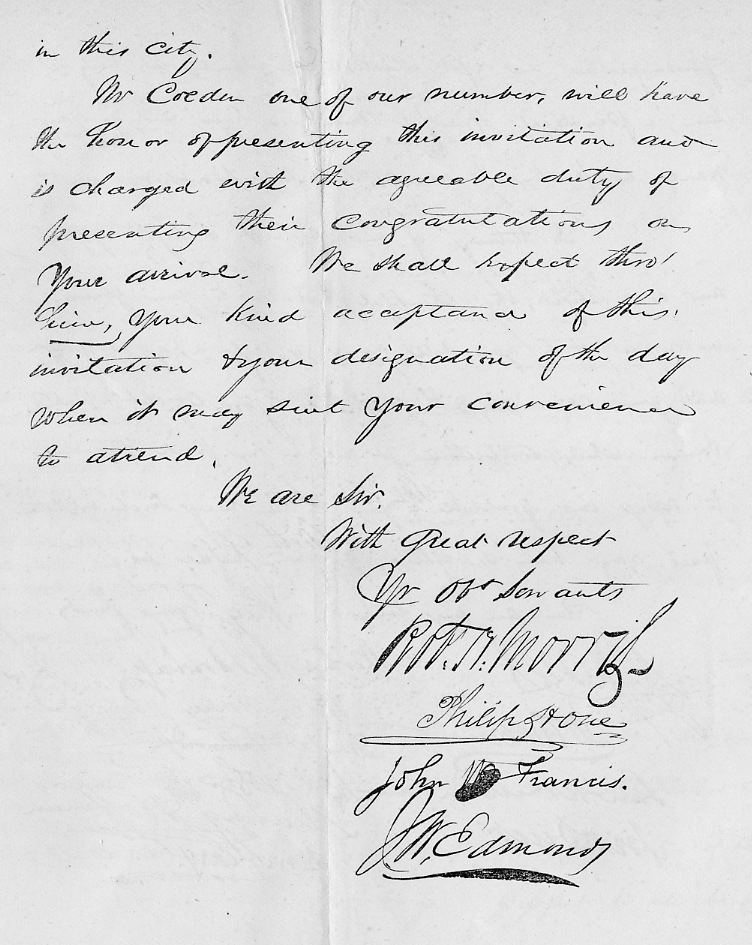 in this city.
Mr Colden one of our number, will have
the honor of presenting this invitation and
is charged with the agreeable duty of
presenting their congratulations on
Your arrival. We shall expect thro'
him, your kind acceptance of this
invitation & your designation of the day
when it may suit Your convenience
to attend.
We are Sir.
With great respect
Yr Obt Servants
Robt. H. Morris
Philip Hone
John W Francis.
J.W. Edmonds